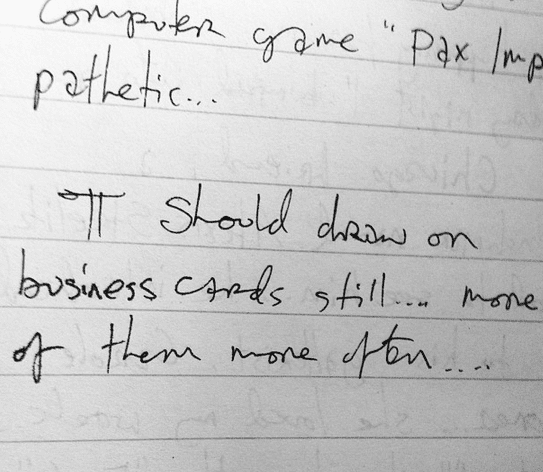 Computer game "Pax Imp
pathetic...
I should draw on
business cards still.... more
of them more often....